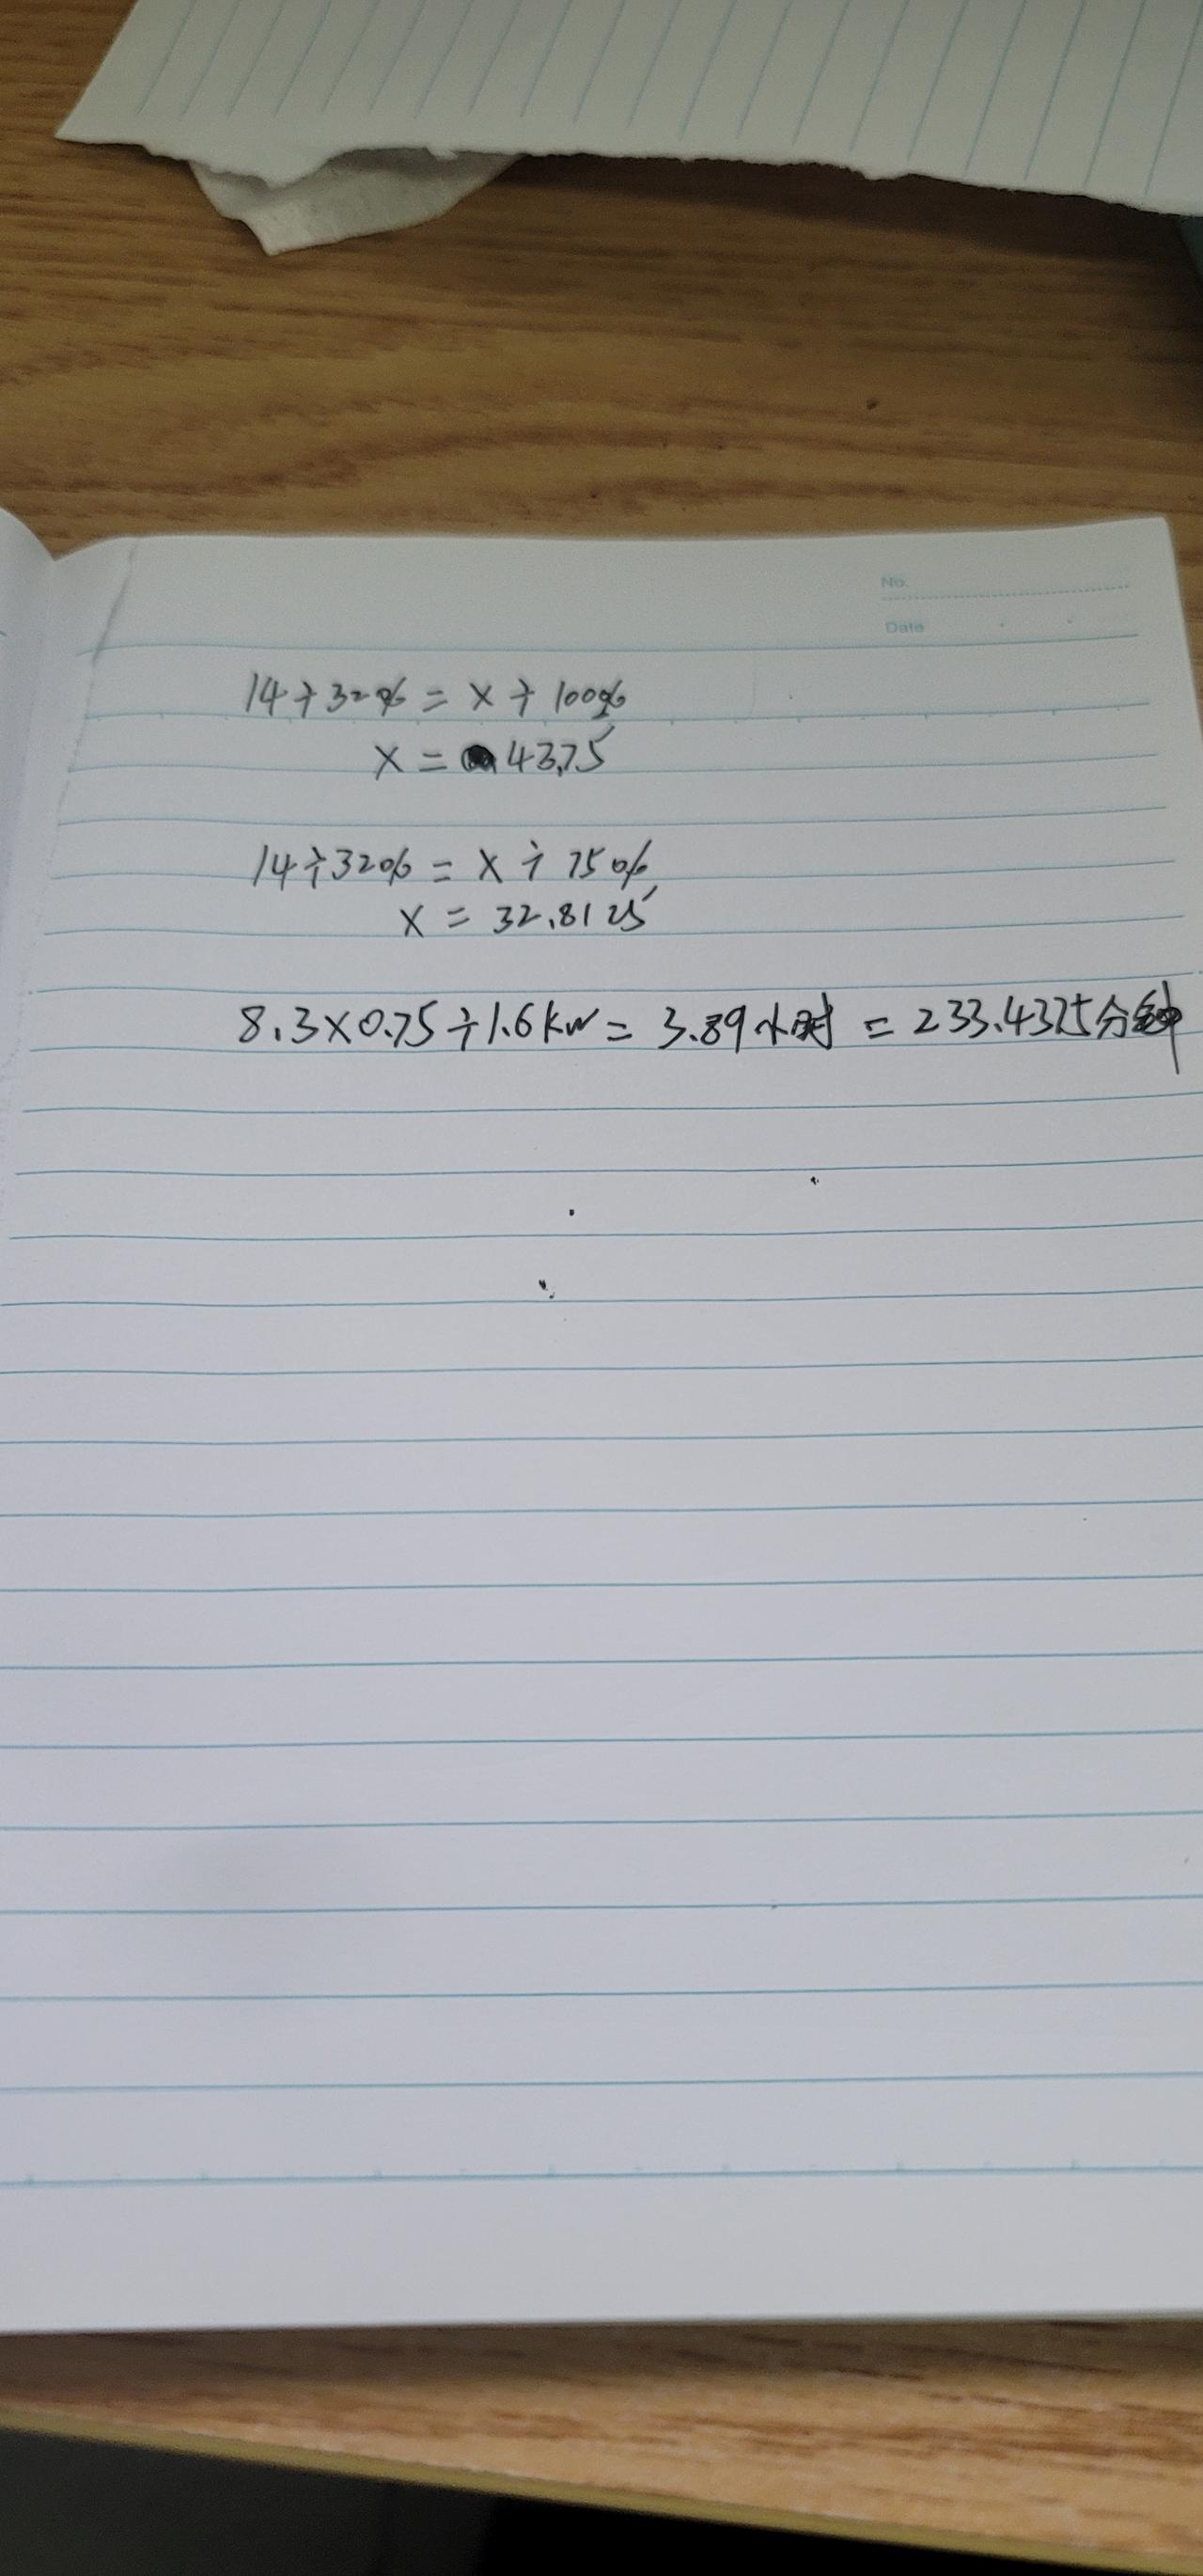 No.
Date
14÷32% = x ÷ 100%
x = 43.75
14÷32% = x ÷ 75%
x = 32.8125
8.3×0.75÷1.6kw = 3.89小时 = 233.4375分钟